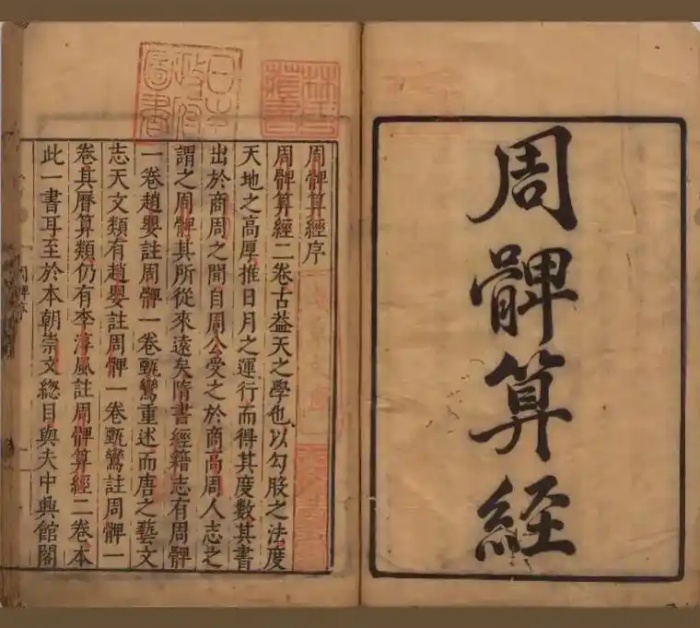 周髀算経
周髀算經序
周髀算經二卷古葢天之學也以勾股之法度
天地之高厚推日月之運行而得其度數其書
出於商周之間自周公受之於商高周人志之
謂之周髀其所從來遠矣隋書經籍志有周髀
一卷趙嬰註周髀一卷甄鸞重述而唐之藝文
志天文類有趙嬰註周髀一卷甄鸞註周髀一
卷其曆算類仍有李淳風註周髀算經二卷本
此一書耳至於本朝崇文緫目與夫中興館閣
林氏藏書
日本政府圖書